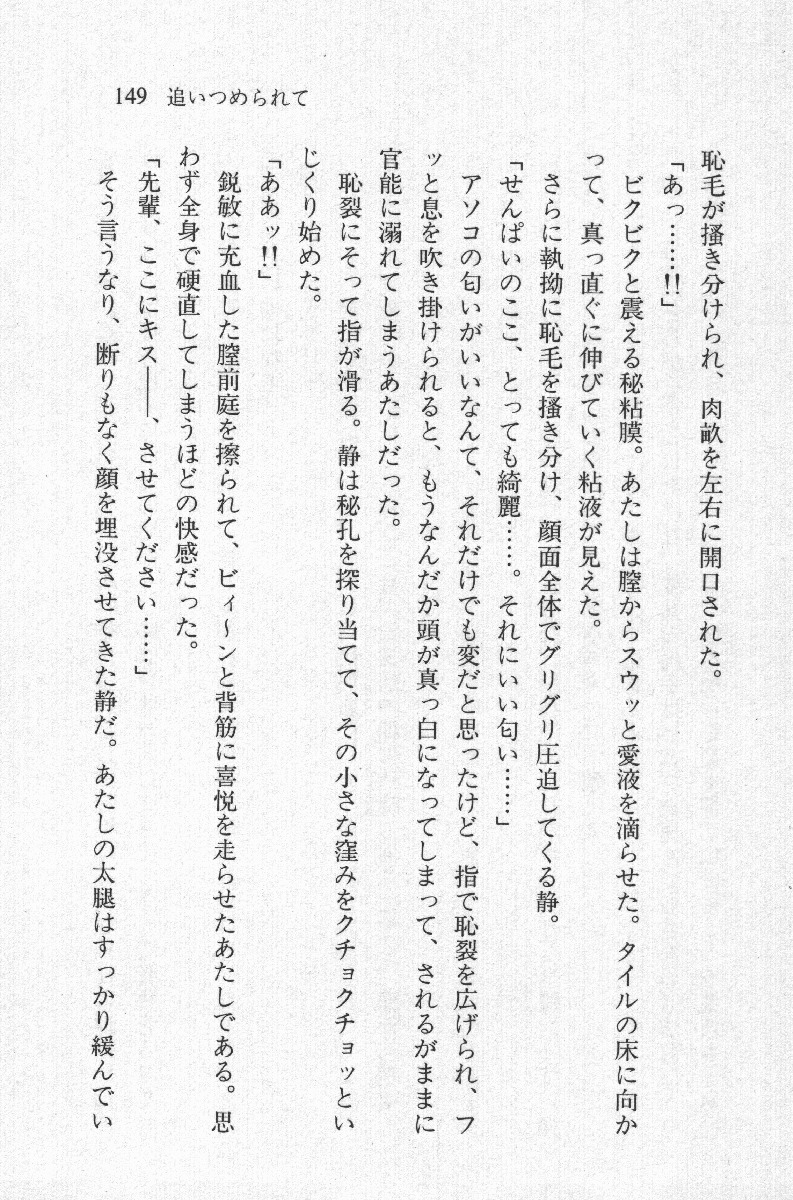 149 追いつめられて
恥毛が搔き分けられ、肉畝を左右に開口された。
「あっ……!!」
ビクビクと震える秘粘膜。あたしは膣からスウッと愛液を滴らせた。タイルの床に向か
って、真っ直ぐに伸びていく粘液が見えた。
さらに執拗に恥毛を搔き分け、顔面全体でグリグリ圧迫してくる静。
「せんぱいのここ、とっても綺麗……。それにいい匂い……」
アソコの匂いがいいなんて、それだけでも変だと思ったけど、指で恥裂を広げられ、フ
ッと息を吹き掛けられると、もうなんだか頭が真っ白になってしまって、されるがままに
官能に溺れてしまうあたしだった。
恥裂にそって指が滑る。静は秘孔を探り当てて、その小さな窪みをクチョクチョッとい
じくり始めた。
「ああッ!!」
鋭敏に充血した膣前庭を擦られて、ビィ〜ンと背筋に喜悦を走らせたあたしである。思
わず全身で硬直してしまうほどの快感だった。
「先輩、ここにキス――、させてください……」
そう言うなり、断りもなく顔を埋没させてきた静だ。あたしの太腿はすっかり緩んでい